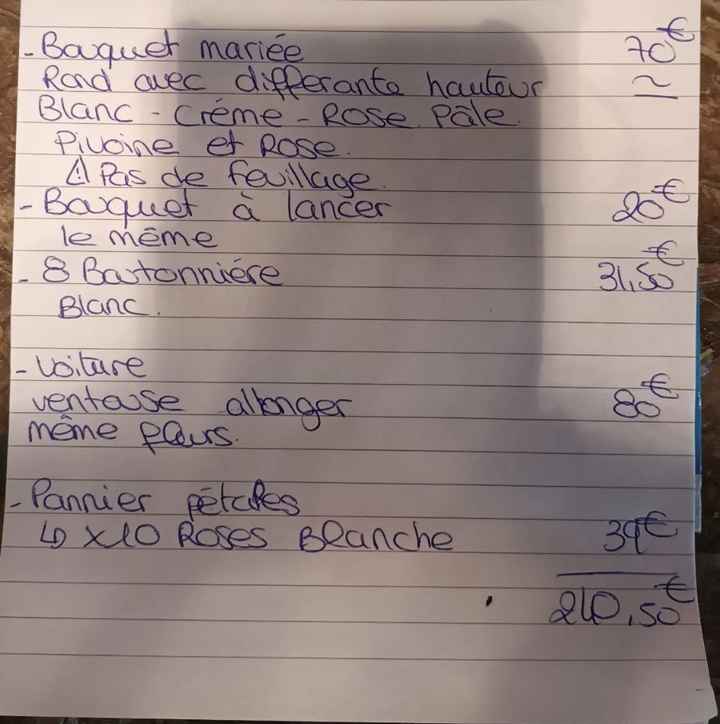 - Bouquet mariée 70€
Rond avec differante hauteur ~
Blanc - Crème - Rose Pâle.
Pivoine et Rose.
⚠ Pas de feuillage.
- Bouquet à lancer 20€
le même
- 8 Boutonnière 31,50€
Blanc.
- Voiture
ventouse allonger 80€
même fleurs.
- Pannier pétales
↳ x10 Roses Blanche 39€
240,50€